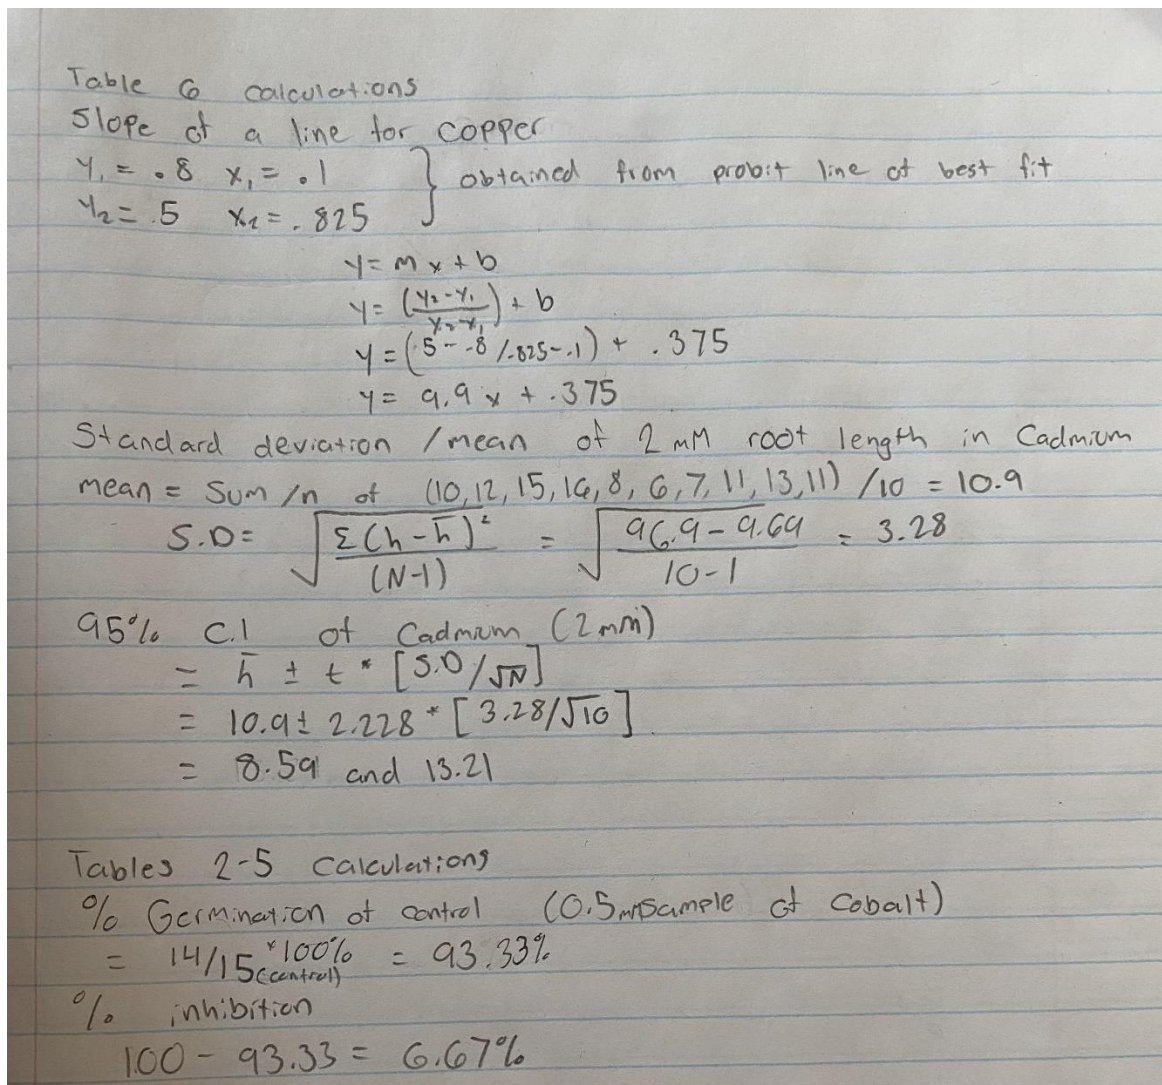 Table 6 calculations
Slope of a line for copper
y₁ = .8 x₁ = .1 } obtained from probit line of best fit
y₂ = .5 x₂ = .825
y = mx + b
y = (y₂-y₁/x₂-x₁) + b
y = (.5 - -.8 /.825-.1) + .375
y = 9.9x + .375
Standard deviation /mean of 2 mM root length in Cadmium
mean = Sum /n of (10,12,15,16,8,6,7,11,13,11) /10 = 10.9
S.D = √(Σ(h-h̄)²/(N-1)) = √(96.9-9.69/10-1) = 3.28
95% C.I of Cadmium (2mM)
= h̄ ± t * [S.D/√N]
= 10.9 ± 2.228 * [3.28/√10]
= 8.59 and 13.21
Tables 2-5 Calculations
% Germination of control (0.5mM sample of Cobalt)
= 14/15(control) *100% = 93.33%
% inhibition
100 - 93.33 = 6.67%